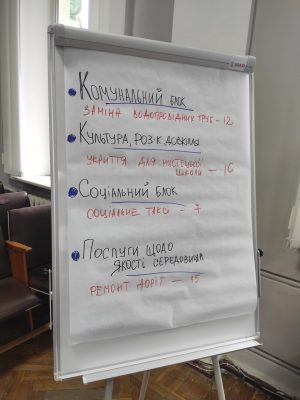 Комунальний блок
заміна водопровідних труб - 12
Культура, роз-к дозвілля
укриття для мистецької
школи - 16
Соціальний блок
соціальне таксі - 7
Послуги щодо
якость середовища
ремонт доріг - 15